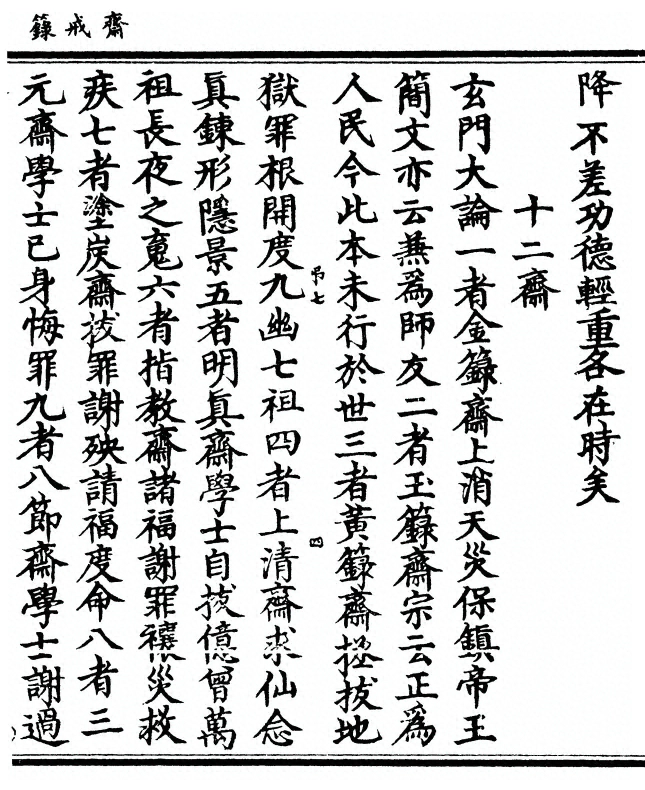 齋戒籙
降不差功德輕重各在時矣
十二齋
玄門大論一者金籙齋上消天災保鎮帝王
簡文亦云兼爲師友二者玉籙齋宗云正爲
人民今此本未行於世三者黃籙齋拯拔地
弔七
四
獄罪根開度九幽七祖四者上清齋求仙念
眞鍊形隱景五者明眞齋學士自拔億曾萬
祖長夜之䰟六者指教齋諸福謝罪禳災救
疾七者塗炭齋拔罪謝殃請福度命八者三
元齋學士已身悔罪九者八節齋學士謝過